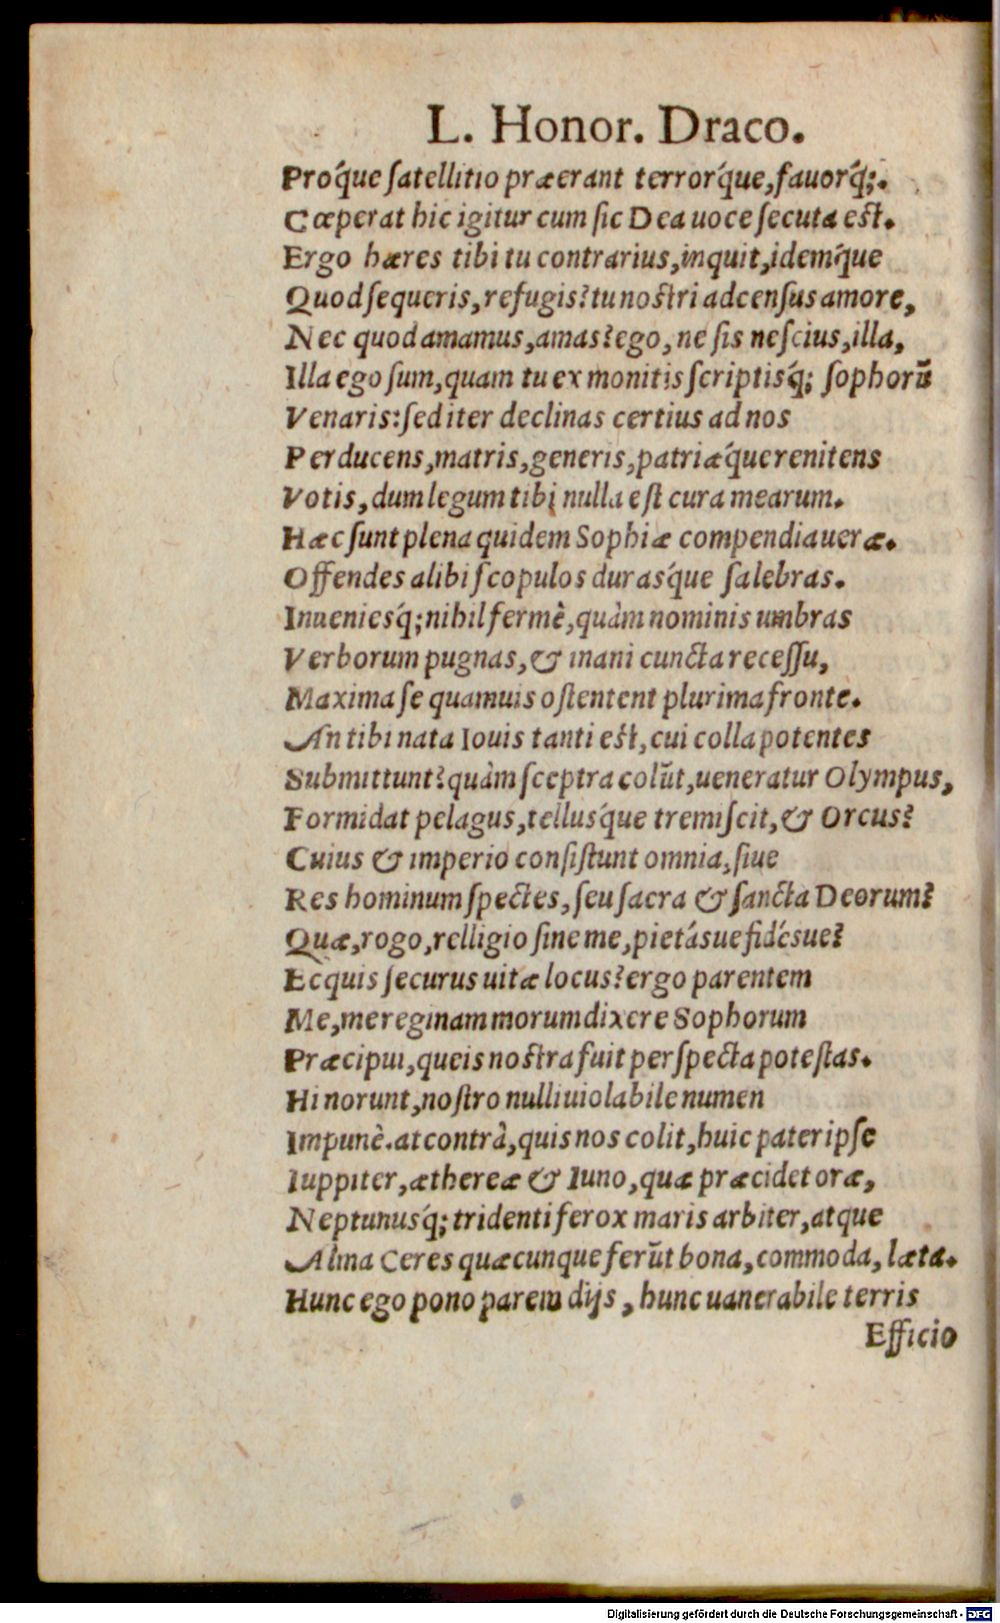 L. Honor. Draco.
Pro q́ue ſatellitio præerant terror q́ue, fauorq́;.
Cœperat hic igitur cum ſic Dea uoce ſecuta eſt.
Ergo hæres tibi tu contrarius, inquit, idem q́ue
Quod ſequeris, refugis? tu noſtri adcenſus amore,
Nec quod amamus, amas? ego, ne ſis neſcius, illa,
Illa ego ſum, quam tu ex monitis ſcriptisq́; ſophorū
Venaris: ſed iter declinas certius ad nos
Perducens, matris, generis, patriæ q́ue renitens
Votis, dum legum tibi nulla eſt cura mearum.
Hæc ſunt plena quidem Sophiæ compendia ueræ.
Offendes alibi ſcopulos duras q́ue ſalebras.
Inueniesq́; nihil fermè, quàm nominis umbras
Verborum pugnas, & inani cuncta receſſu,
Maxima ſe quamuis oſtentent plurima fronte.
An tibi nata Iouis tanti eſt, cui colla potentes
Submittunt? quàm ſceptra colūt, ueneratur Olympus,
Formidat pelagus, tellus q́ue tremiſcit, & Orcus?
Cuius & imperio conſiſtunt omnia, ſiue
Res hominum ſpectes, ſeu ſacra & ſancta Deorum?
Quæ, rogo, relligio ſine me, pietásue fidésue?
Ecquis ſecurus uitæ locus? ergo parentem
Me, me reginam morum dixere Sophorum
Præcipui, queis noſtra fuit perſpecta poteſtas.
Hi norunt, noſtro nulli uiolabile numen
Impunè. at contrà, quis nos colit, huic pater ipſe
Iuppiter, æthereæ & Iuno, quæ præcidet oræ,
Neptunusq́; tridenti ferox maris arbiter, atque
Alma Ceres quæcunque ferūt bona, commoda, læta.
Hunc ego pono parem dijs, hunc uanerabile terris
Efficio
Digitalisierung gefördert durch die Deutsche Forschungsgemeinschaft - DFG